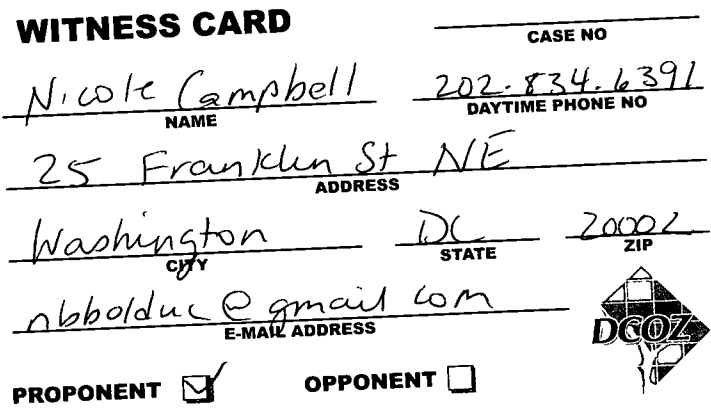 WITNESS CARD
CASE NO
Nicole Campbell 202.834.6391
NAME DAYTIME PHONE NO
25 Franklin St NE
ADDRESS
Washington DC 20002
CITY STATE ZIP
nbbolduc@gmail com
E-MAIL ADDRESS
DCOZ
PROPONENT OPPONENT